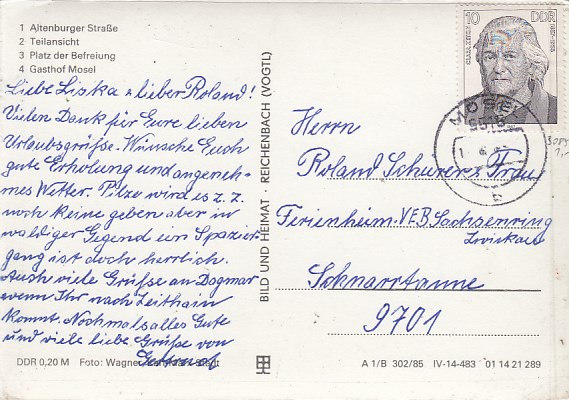 1 Altenburger Straße
2 Teilansicht
3 Platz der Befreiung
4 Gasthof Mosel
Liebe Liska u. lieber Roland!
Vielen Dank für Eure lieben
Urlaubsgrüße. Wünsche Euch
gute Erholung und angeneh-
mes Wetter. Pilze wird es z. Z.
noch keine geben aber in
waldiger Gegend ein Spazier-
gang ist doch herrlich.
Auch viele Grüße an Dagmar
wenn Ihr nach Leithain
kommt. Nochmals alles Gute
und viele liebe Grüße von
DDR 0,20 M Foto: Wagner
BILD UND HEIMAT REICHENBACH (VOGTL)
10 DDR
MOSEL
9515
b
Herrn
Roland Schürer u. Frau
Ferienheim VEB Sachsenring
Zwickau
Schnarrtanne
9701
A 1/B 302/85 IV-14-483 01 14 21 289